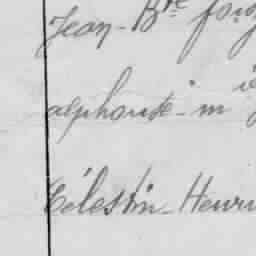 Jean-Bte
alphonse-m
Célestin-Henri